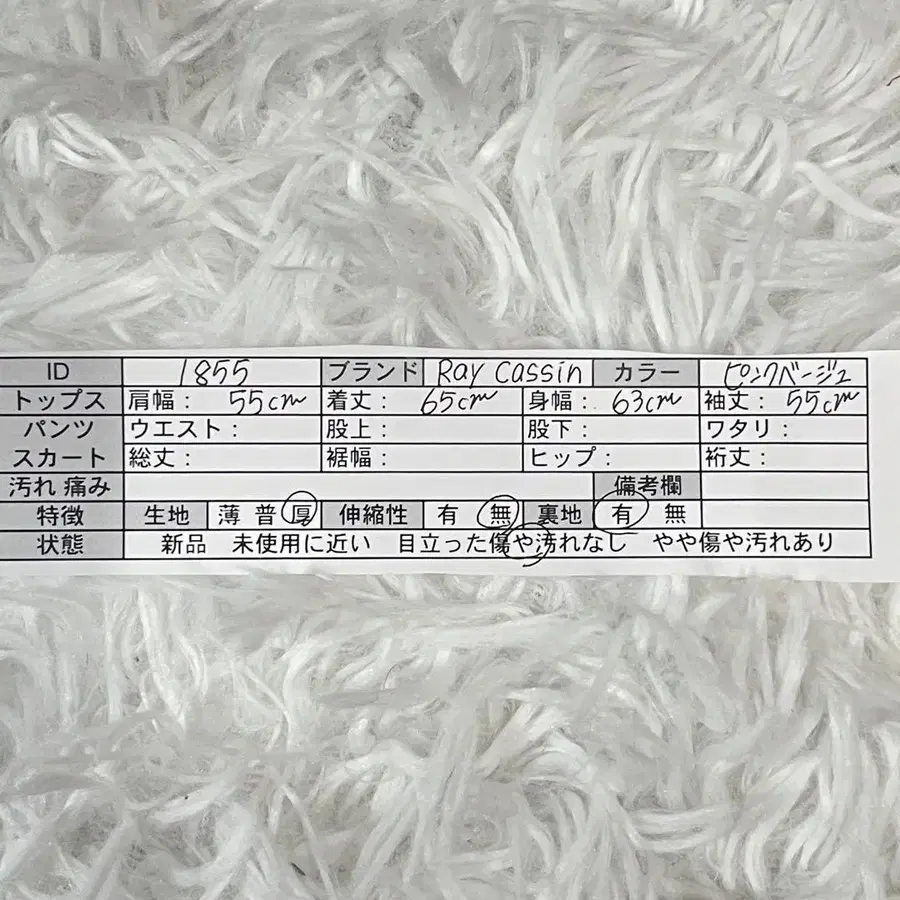 ID 1855 ブランド Ray Cassin カラー ピンクベージュ
トップス 肩幅: 55cm 着丈: 65cm 身幅: 63cm 袖丈: 55cm
パンツ ウエスト: 股上: 股下: ワタリ:
スカート 総丈: 裾幅: ヒップ: 裄丈:
汚れ 痛み 備考欄
特徴 生地 薄 普 厚 伸縮性 有 無 裏地 有 無
状態 新品 未使用に近い 目立った傷や汚れなし やや傷や汚れあり